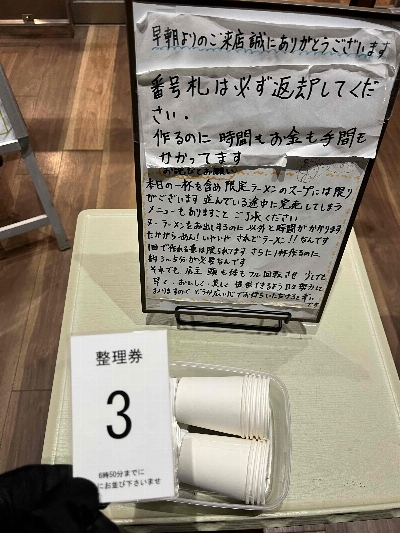 早朝よりのご来店誠にありがとうございます
番号札は必ず返却してくだ
さい。
作るのに時間もお金も手間も
かかってます
お詫びとお願い
本日の一杯を含め限定ラーメンのスープには限り
がございます 並んでいる途中に完売してしまう
メニューもありますこと ご了承ください
ラーメンをお出しするのに以外と時間がかかります
たかがらーめん!いやいや されどラーメン!!なんです
1回で作れる量は限られてます さらに1杯作るのに
約3~5分が必要なんです
それでも 店主 頭も体もフル回転させ 少しでも
早く、おいしく、美しく 提供できるよう日々努力して
おりますので どうか広い心でお待ちいただけると幸い
です
整理券
3
6時50分までに
にお並び下さいませ